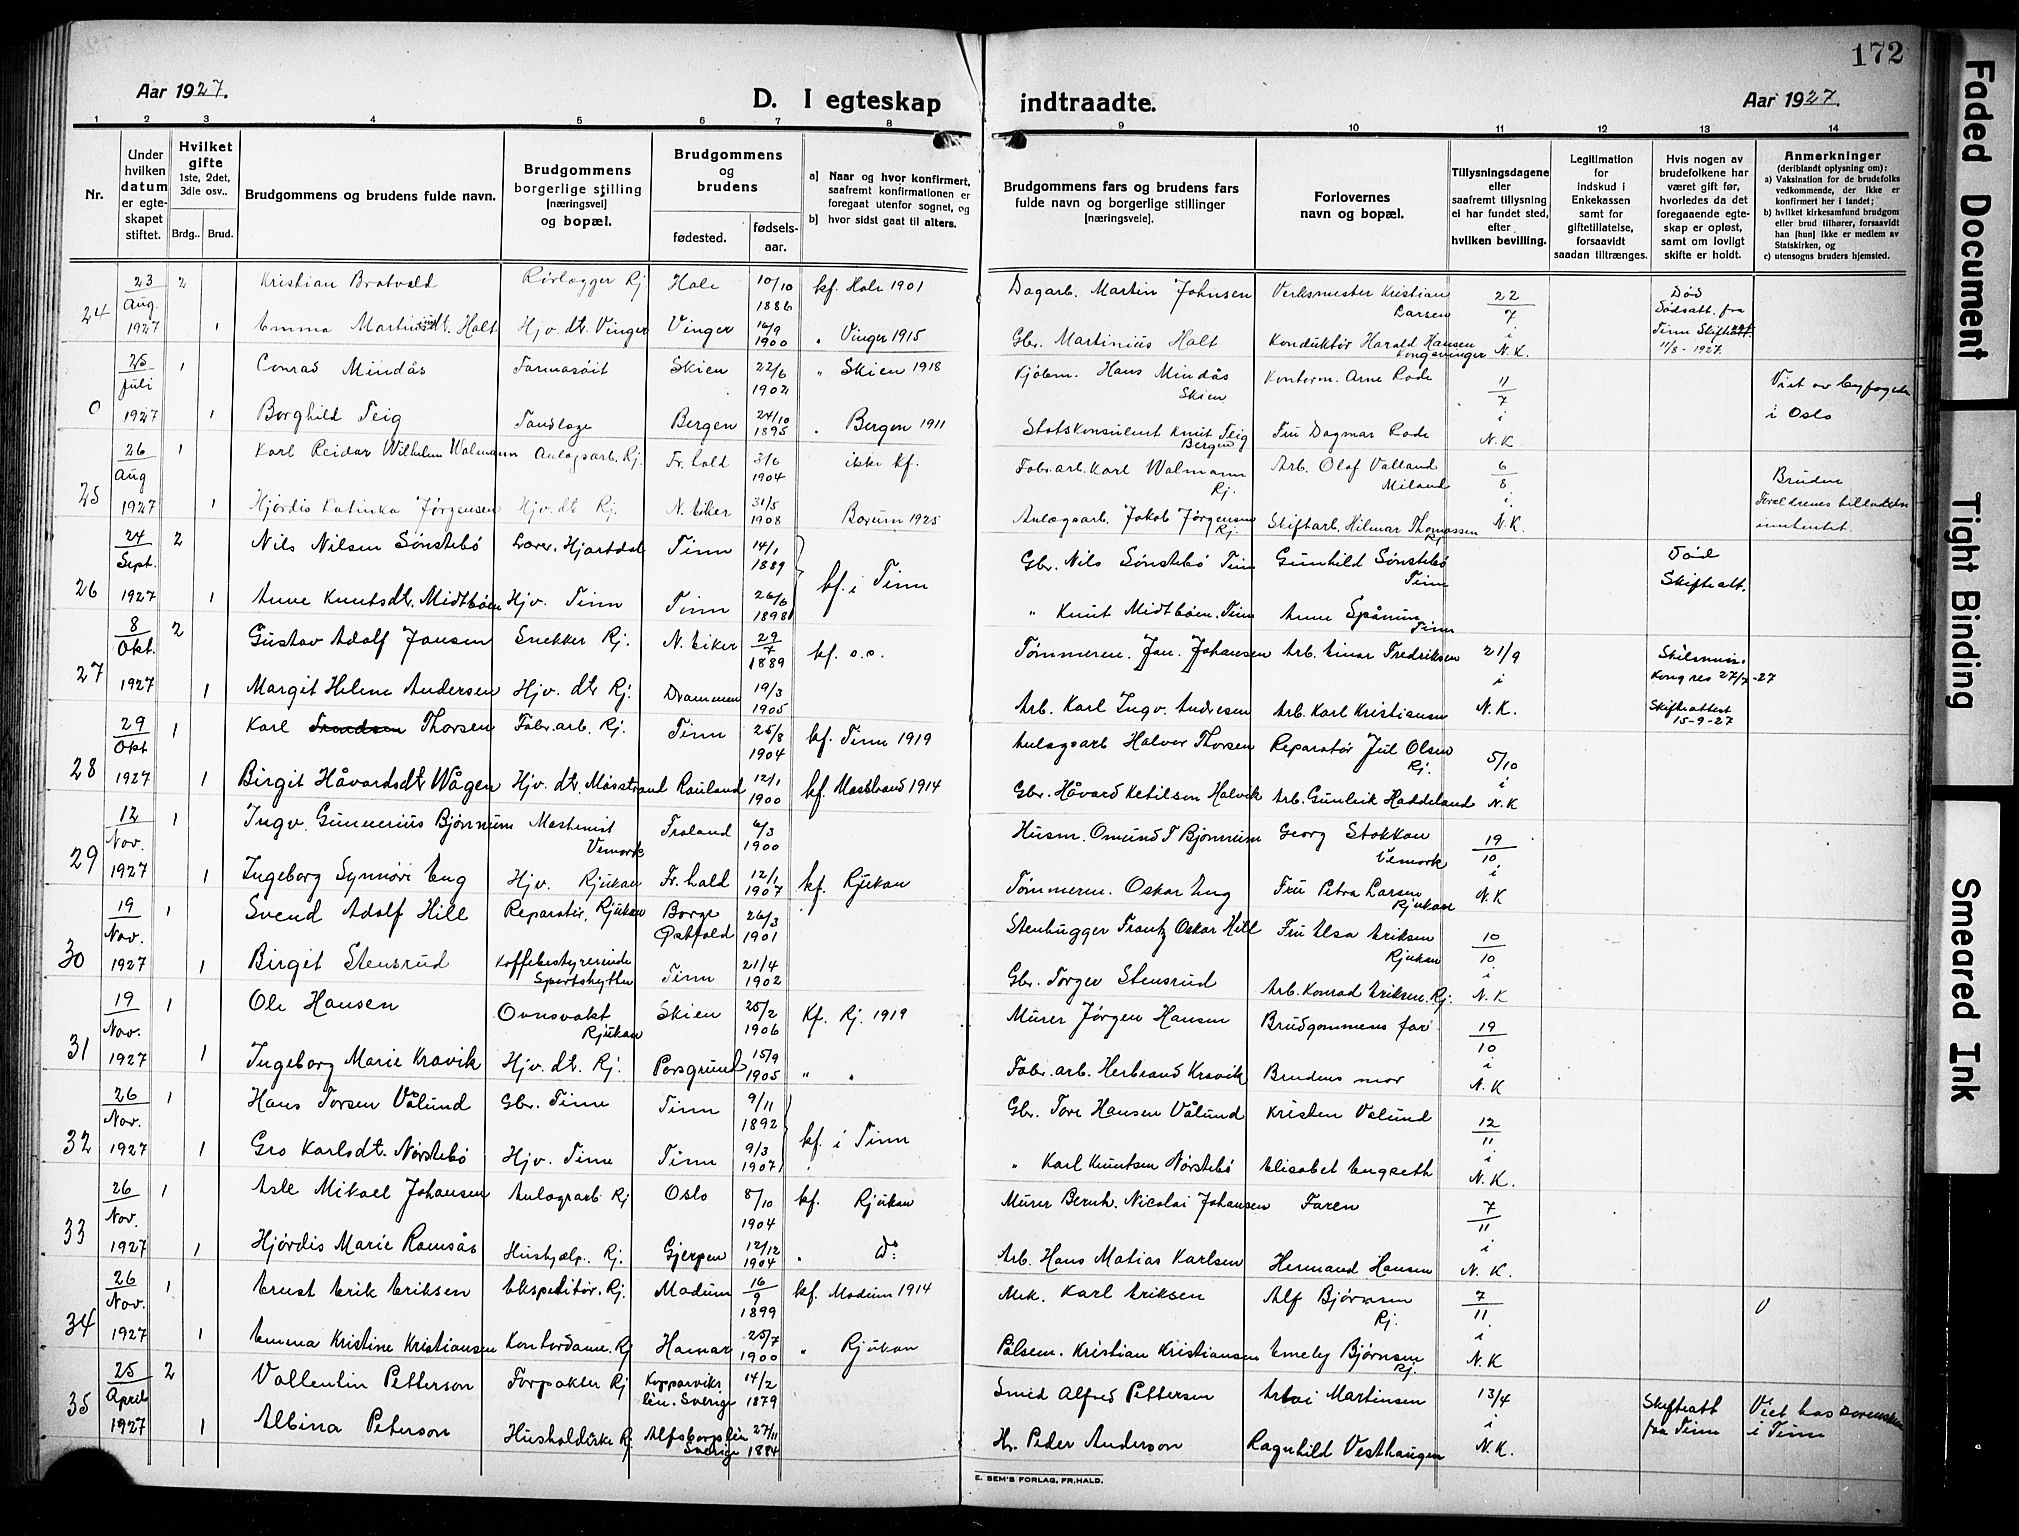 172
Aar 1927.
D. I egteskap indtraadte.
Aar 1927.
1 2 3 4 5 6 7 8 9 10 11 12 13 14
Nr.
Under hvilken datum er egteskapet stiftet.
Hvilket gifte 1ste, 2det, 3die osv..
Brdg.. Brud.
Brudgommens og brudens fulde navn.
Brudgommens borgerlige stilling [næringsvei] og bopæl.
Brudgommens og brudens
fødested. fødselsaar.
a) Naar og hvor konfirmert, saafremt konfirmationen er foregaat utenfor sognet, og
b) hvor sidst gaat til alters.
Brudgommens fars og brudens fars fulde navn og borgerlige stillinger [næringsveie].
Forlovernes navn og bopæl.
Tillysningsdagene eller saafremt tillysning ei har fundet sted, efter hvilken bevilling.
Legitimation for indskud i Enkekassen samt for giftetillatelse, forsaavidt saadan tiltrænges.
Hvis nogen av brudefolkene har været gift før, hvorledes da det foregaaende egteskap er opløst, samt om lovligt skifte er holdt.
Anmerkninger
(deriblandt oplysning om):
a) Vaksination for de brudefolks vedkommende, der ikke er konfirmert her i landet;
b) hvilket kirkesamfund brudgom eller brud tilhører, forsaavidt han [hun] ikke er medlem av Statskirken, og
c) utensogns bruders hjemsted.
24 23 Aug. 1927 2 Kristian Bratvold Rørlægger Rj Hole 10/10 1886 kf. Hole 1901 Dagarb. Martin Johnsen Verksmester Kristian Larsen 22/7 i N.K. Død Dødsatt. fra Tinn Skifteatt. 11/8-1927.
1 Emma Martinusdt. Holt Hjv. dt. Vinger Vinger 16/9 1900 " Vinger 1915 Gbr. Martinius Holt Konduktør Harald Hansen Kongsvinger
0 25 Juli 1927 1 Conrad Mindås Farmasøit Skien 22/6 1902 " Skien 1918 Kjøbm. Hans Mindås Skien Kontorm. Arne Rode 11/7 i N.K Viet av byfogden i Oslo
1 Borghild Teig Tandlæge Bergen 24/10 1895 " Bergen 1911 Statskonsulent Knut Teig Bergen Fru Dagmar Rode
25 26 Aug 1927 1 Karl Reidar Wilhelm Walmann Anlægsarb. Rj. Fr.hald 3/6 1904 ikke kf. Fabr.arb. Karl Walmann Rj. Arb. Olaf Valland Miland 6/8 i N.K. Bruden Foreldrenes tilladelse innhentet.
1 Hjørdis Katinka Jørgensen Hjv. dt Rj. N. Eiker 31/5 1908 Borum 1925 Anlægsarb. Jakob Jørgensen Rj. Skiftarb. Hilmar Thomassen Rj
26 24 Sept. 1927 2 Nils Nilsen Sønstebø Lærer. Hjartdal Tinn 14/1 1889 kf. i Tinn Gbr. Nils Sønstebø Tinn Gunhild Sønstebø Tinn Død Skifteatt.
1 Anne Knutsdt. Midtbøen Hjv. Tinn Tinn 26/6 1898 " Knut Midtbøen. Tinn Anne Spånun Tinn
27 8 Okt. 1927 2 Gustav Adolf Jansen Snekker Rj. N. Eiker 29/7 1889 kf. o.s. Tømmerm. Jan. Johansen Arb. Einar Fredriksen 21/9 i N.K.
1 Margit Helene Andersen Hjv. dt Rj. Drammen 19/3 1905 Arb. Karl Ingv. Andresen Arb. Karl Kristiansen Skifteattest 15-9-27
28 29 Okt 1927 1 Karl Thorsen Fabr.arb. Rj. Tinn 25/8 1904 kf. Tinn 1919 Anlægsarb Halvor Thorsen Reparatør Jul Olsen Rj. 5/10 i N.K
1 Birgit Håvardsdt Vågen Hjv. dt. Møsstrand Rauland 12/1 1900 kf. Møsstrand 1914 Gbr. Håvard Ketilson Halvik Arb. Gunleik Haddeland
29 12 Nov. 1927 1 Ingv. Gunnerius Bjønnum Maskinist Vemork Froland 6/3 1900 Husm. Omund T Bjønnum Georg Stokkan Vemork 19/10. i N.K
1 Ingeborg Synnøve Eng Hjv. Rjukan Fr.hald 12/1 1907 kf. Rjukan Tømmerm. Oskar Eng Fru Petra Larsen Rjukan
30 19 Nov. 1927 1 Svend Adolf Hill Reparatør, Rjukan Borge Østfold 26/3 1901 Stenhugger Frantz Oskar Hill Fru Elsa Eriksen Rjukan 10/10 i N.K
1 Birgit Stensrud Kaffebestyrerinde Sportshytten Tinn 21/4 1902 Gbr. Torger Stensrud Arb. Konrad Eriksen. Rj.
31 19 Nov. 1927 1 Ole Hansen Ovnsvakt Rjukan Skien 25/2 1906 Kf. Rj. 1919 Murer Jørgen Hansen Brudgommens far 19/10 i N.K
1 Ingeborg Marie Kravik Hjv. dt. Rj. Porsgrund 15/9 1905 " " Fabr.arb. Herbrand Kravik Brudens mor
32 26 Nov. 1927 1 Hans Torsen Vålund Gbr. Tinn Tinn 9/11 1892 kf. i Tinn Gbr. Tore Hansen Vålund Kristen Vålund 12/11 i N.K.
1 Gro Karlsdt. Nørstebø Hjv. Tinn Tinn 9/3 1907 " Karl Knutsen Nørstebø Elisabet Engseth
33 26 Nov. 1927 1 Asle Mikael Johansen Anlægsarb Rj Oslo 8/10 1904 kf. Rjukan Murer Bernh. Nicolai Johansen Faren 7/11 i N.K.
1 Hjørdis Marie Ramsås Hushjælp. Rj. Gjerpen 12/12 1904 " do Arb. Hans Matias Karlsen Hermand Hansen
34 26 Nov. 1927 1 Ernst Erik Eriksen Ekspeditør. Rj. Modum 16/9 1899 kf. Modum 1914 Mek. Karl Eriksen Alf Bjørnsen Rj. 7/11. i N.K
1 Emma Kristine Kristiansen Kontordame. Rj Hamar 25/7 1900 " Rjukan Pølsem. Kristian Kristiansen Emely Bjørnsen Rj.
35 25 April 1927 2 Vallentin Petterson Forpakter Rj Kopparviks len. Sverige 14/2 1879 Smed Alfred Pettersen Martinsen 13/4 i N.K. Skifteatt fra Tinn Viet hos sorenskr i Tinn
1 Albina Peterson Husholderske Rj Alfsborgslen Sverige 27/11 1884 Hr. Peder Anderson Ragnhild Vesthaugen
E. SEM'S FORLAG, FR.HALD.
Faded Document
Tight Binding
Smeared Ink